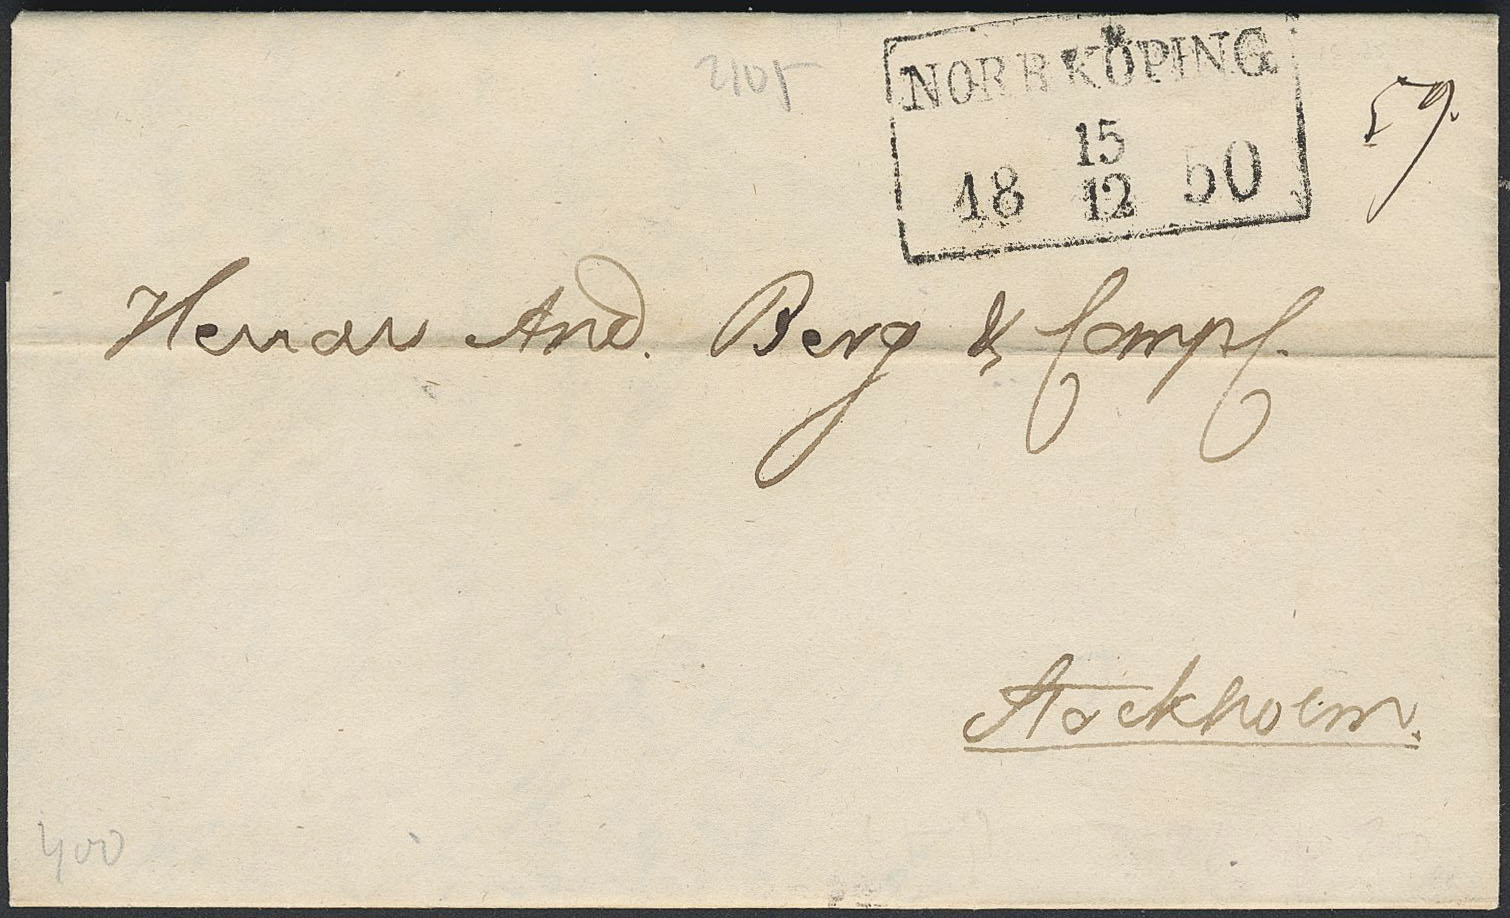 2105
NORRKÖPING
15
18 12 50
59.
Herrar And. Berg & Comp.
Stockholm.
400